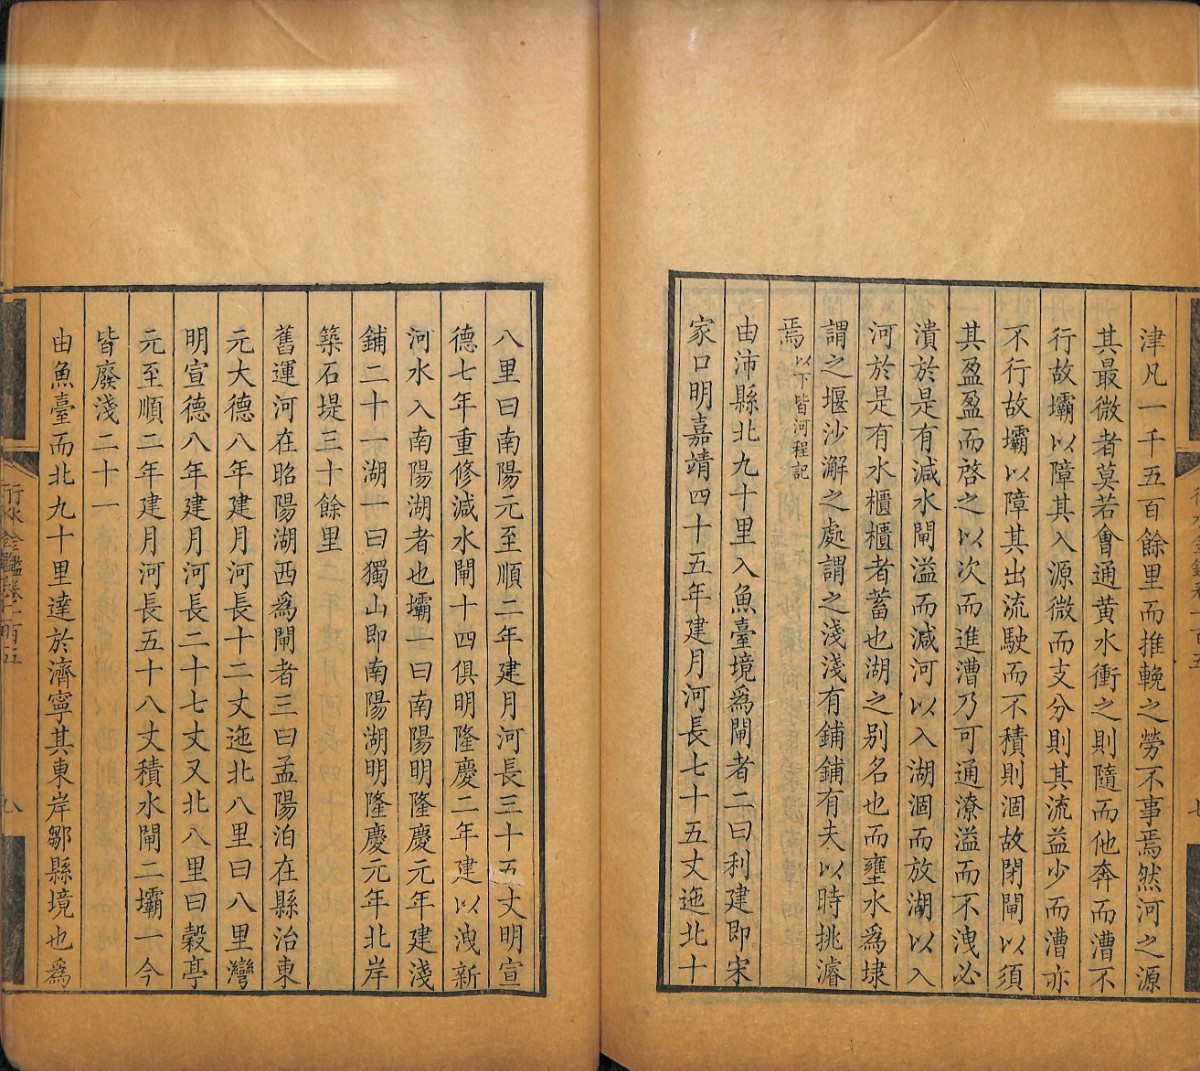 津凡一千五百餘里而推輓之勞不事焉然河之源
其最微者莫若會通黄水衝之則隨而他奔而漕不
行故壩以障其入源微而支分則其流益少而漕亦
不行故壩以障其出流駛而不積則涸故閉閘以須
其盈盈而啓之以次而進漕乃可通潦溢而不洩必
潰於是有減水閘溢而減河以入湖涸而放湖以入
河於是有水櫃櫃者蓄也湖之别名也而壅水爲埭
謂之堰沙澥之處謂之淺淺有鋪鋪有夫以時挑濬
焉以下皆河程記
由沛縣北九十里入魚臺境爲閘者二曰利建即宋
家口明嘉靖四十五年建月河長七十五丈迤北十
八里曰南陽元至順二年建月河長三十五丈明宣
德七年重修減水閘十四俱明隆慶二年建以洩新
河水入南陽湖者也壩一曰南陽明隆慶元年建淺
鋪二十一湖一曰獨山即南陽湖明隆慶元年北岸
築石堤三十餘里
舊運河在昭陽湖西爲閘者三曰孟陽泊在縣治東
元大德八年建月河長十二丈迤北八里曰八里灣
明宣德八年建月河長二十七丈又北八里曰穀亭
元至順二年建月河長五十八丈積水閘二壩一今
皆廢淺二十一
由魚臺而北九十里達於濟寧其東岸鄒縣境也爲
行水金鑑卷一百五
八